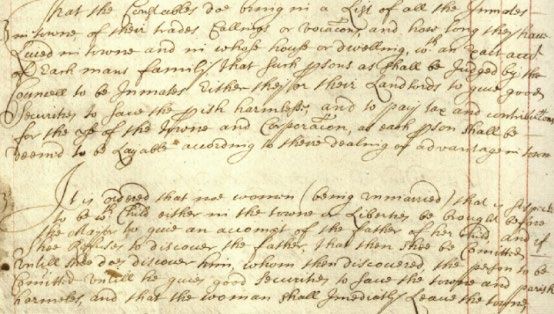 That the Constables doe bring in a List of all the Inmates
in towne, of their trades Callings or vocacons, and how long they have
Lived in towne and in whose house or dwelling, wth an exact acct
of Each mans family, that such psons as shall be Judged by the
Councell to be Inmates Either they or their Landlords to give good
Securites to save the pish harmeless, and to pay tax and contributions
for the use of the towne and Corporacon, as each pson shall be
seemd to be Layable according to there dealing or advantage in town
It is ordered that noe women (being unmarried) that is suspected
to be wth Child either in the towne or Liberties be brought before
the Maior to give an accompt of the father of her Child and if
shee Refuses to discover the father, that then shee be Comitted
untill shee does discover him, whom then discovered the person to be
Comitted untill he gives good securites to save the towne and parish
harmeles, and that the woman shall Imediatly Leave the towne